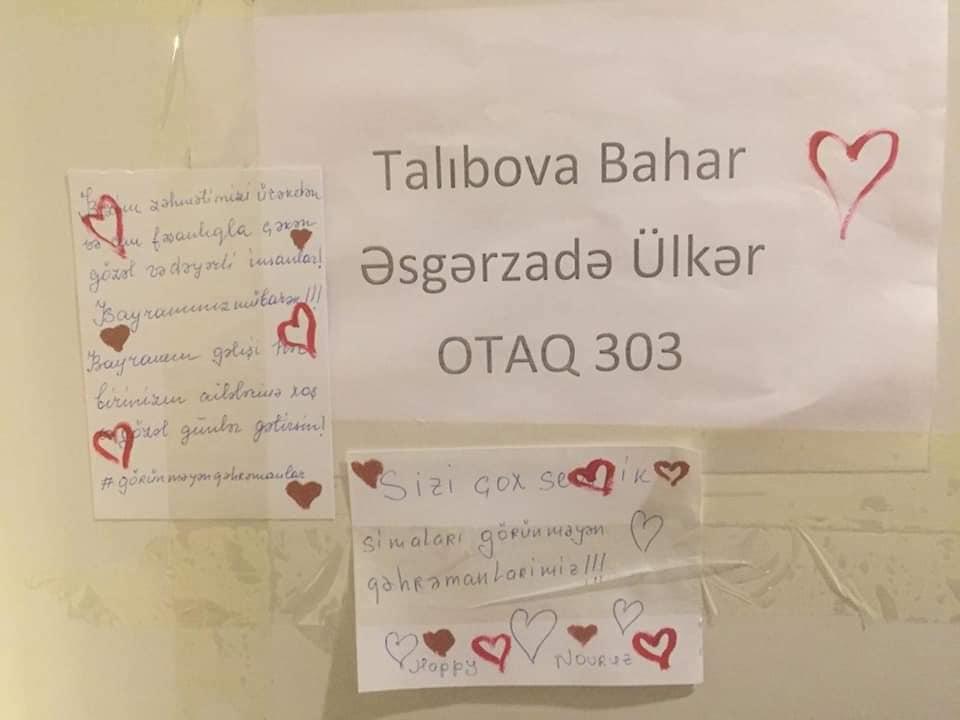 Talıbova Bahar
Əsgərzadə Ülkər
OTAQ 303
Bizim zəhmətimizi ürəkdən
və fəsanlıqla çəkən
gözəl və dəyərli insanlar!
Bayramınız mübarək!!!
Bayramın gəlişi hər
birinizin ailələrinə xoş
gözəl günlər gətirsin!
#görünməyənqəhrəmanlar
Sizi çox sevirik
simaları görünməyən
qəhrəmanlarımız!!!
Happy Novruz